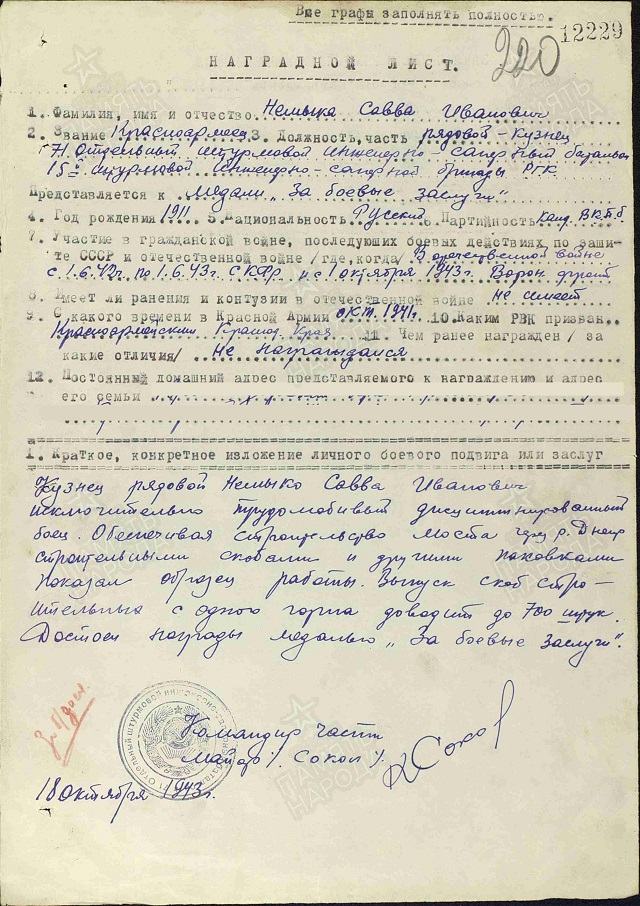 Все графы заполнять полностью.
12229
220
НАГРАДНОЙ ЛИСТ.
1. Фамилия, имя и отчество Немыка Савва Иванович
2. Звание Красноармеец 3. Должность, часть рядовой-кузнец
71 Отдельный штурмовой инженерно-саперный батальон
15й штурмовой инженерно-саперной бригады РГК
Представляется к медали „За боевые заслуги"
4. Год рождения 1911 5. Национальность Русский 6. Партийность канд. ВКПб
7. Участие в гражданской войне, последующих боевых действиях по защи-
те СССР и отечественной войне /где, когда/ В отечественной войне
с 1.6.42г. по 1.6.43г. СКФр. и с 1 октября 1943г. Ворон. фронт
8. Имеет ли ранения и контузии в отечественной войне не имеет
9. С какого времени в Красной Армии окт. 1941г. 10. Каким РВК призван
Красноармейским Краснод. Края 11. Чем ранее награжден /за
какие отличия/ Не награждался
12. Постоянный домашний адрес представляемого к награждению и адрес
его семьи
1. Краткое, конкретное изложение личного боевого подвига или заслуг
Кузнец рядовой Немыко Савва Иванович
исключительно трудолюбивый дисциплинированный
боец. Обеспечивая строительство моста через р. Днепр
строительными скобами и другими поковками
показал образец работы. Выпуск скоб стро-
ительных с одного горна доводит до 700 штук.
Достоен награды медалью „За боевые заслуги".
Командир части
майор /Сокол/
18 октября 1943г.